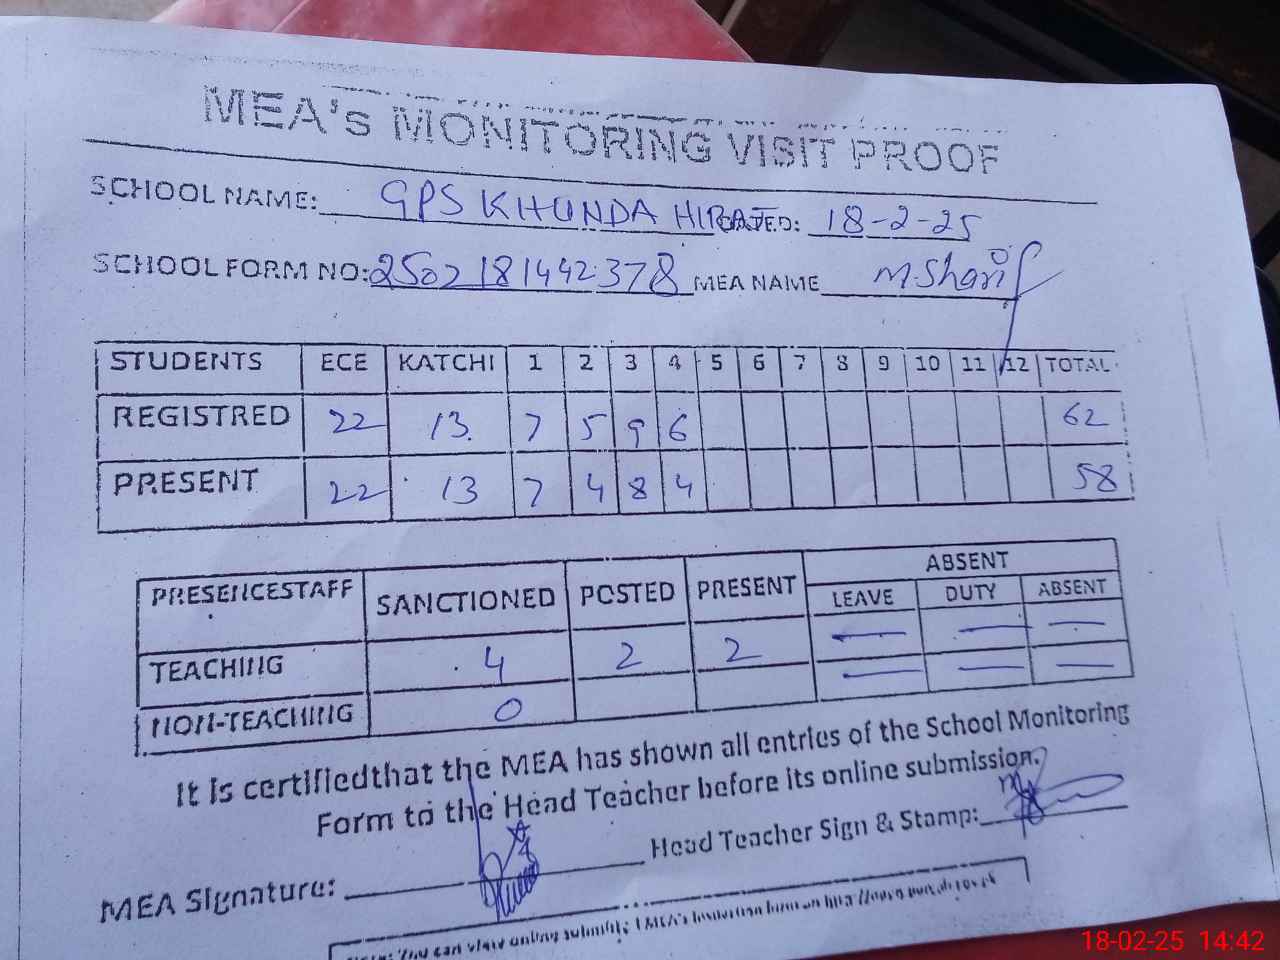 MEA's MONITORING VISIT PROOF
SCHOOL NAME: GPS KHUNDA DATED: 18-2-25
SCHOOL FORM NO: 2502181442378 MEA NAME M.Sharif
STUDENTS ECE KATCHI 1 2 3 4 5 6 7 8 9 10 11 12 TOTAL
REGISTRED 22 13 7 5 9 6 62
PRESENT 22 13 7 4 8 4 58
PRESENCESTAFF SANCTIONED POSTED PRESENT ABSENT
LEAVE DUTY ABSENT
TEACHING 4 2 2 — — —
NON-TEACHING 0 — — —
It is certifiedthat the MEA has shown all entries of the School Monitoring
Form to the Head Teacher before its online submission.
MEA Signature: Head Teacher Sign & Stamp:
You can view online
18-02-25 14:42